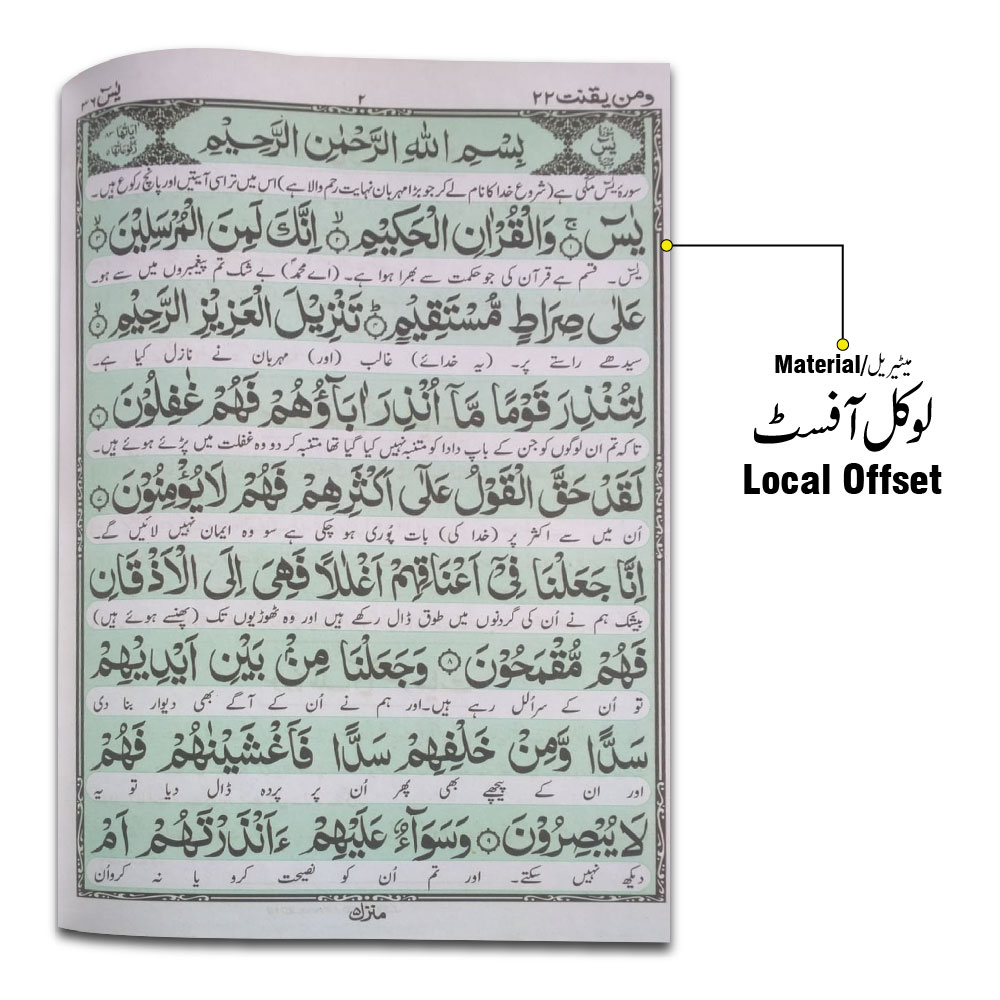 ومن یقنت ۲۲
۲
یٰسٓ ۳۶
بِسْمِ اللهِ الرَّحْمٰنِ الرَّحِيْمِ
سورۂ یٰسٓ مکی ہے (شروع خدا کا نام لے کر جو بڑا مہربان نہایت رحم والا ہے) اس میں تراسی آیتیں اور پانچ رکوع ہیں۔
يٰسٓ ۚ﴿۱﴾ وَالْقُرْاٰنِ الْحَكِيْمِ ۙ﴿۲﴾ اِنَّكَ لَمِنَ الْمُرْسَلِيْنَ ۙ﴿۳﴾
یٰسٓ۔ قسم ہے قرآن کی جو حکمت سے بھرا ہوا ہے۔ (اے محمدؐ) بے شک تم پیغمبروں میں سے ہو۔
عَلٰى صِرَاطٍ مُّسْتَقِيْمٍ ؕ﴿۴﴾ تَنْزِيْلَ الْعَزِيْزِ الرَّحِيْمِ ۙ﴿۵﴾
سیدھے راستے پر۔ (یہ خدائے) غالب (اور) مہربان نے نازل کیا ہے۔
لِتُنْذِرَ قَوْمًا مَّاۤ اُنْذِرَ اٰبَآؤُهُمْ فَهُمْ غٰفِلُوْنَ ﴿۶﴾
تاکہ تم ان لوگوں کو جن کے باپ دادا کو متنبہ نہیں کیا گیا تھا متنبہ کر دو وہ غفلت میں پڑے ہوئے ہیں۔
لَقَدْ حَقَّ الْقَوْلُ عَلٰۤى اَكْثَرِهِمْ فَهُمْ لَا يُؤْمِنُوْنَ ﴿۷﴾
اُن میں سے اکثر پر (خدا کی) بات پُوری ہو چکی ہے سو وہ ایمان نہیں لائیں گے۔
اِنَّا جَعَلْنَا فِيْۤ اَعْنَاقِهِمْ اَغْلٰلًا فَهِىَ اِلَى الْاَذْقَانِ
بیشک ہم نے اُن کی گردنوں میں طوق ڈال رکھے ہیں اور وہ ٹھوڑیوں تک (پھنسے ہوئے ہیں)
فَهُمْ مُّقْمَحُوْنَ ﴿۸﴾ وَجَعَلْنَا مِنْۢ بَيْنِ اَيْدِيْهِمْ
تو اُن کے سر اُلل رہے ہیں۔ اور ہم نے اُن کے آگے بھی دیوار بنا دی
سَدًّا وَّمِنْ خَلْفِهِمْ سَدًّا فَاَغْشَيْنٰهُمْ فَهُمْ
اور ان کے پیچھے بھی پھر اُن پر پردہ ڈال دیا تو یہ
لَا يُبْصِرُوْنَ ﴿۹﴾ وَسَوَآءٌ عَلَيْهِمْ ءَاَنْذَرْتَهُمْ اَمْ
دیکھ نہیں سکتے۔ اور تم اُن کو نصیحت کرو یا نہ کرو اُن
منزل ۵
Material/میٹیریل
لوکل آفسٹ
Local Offset